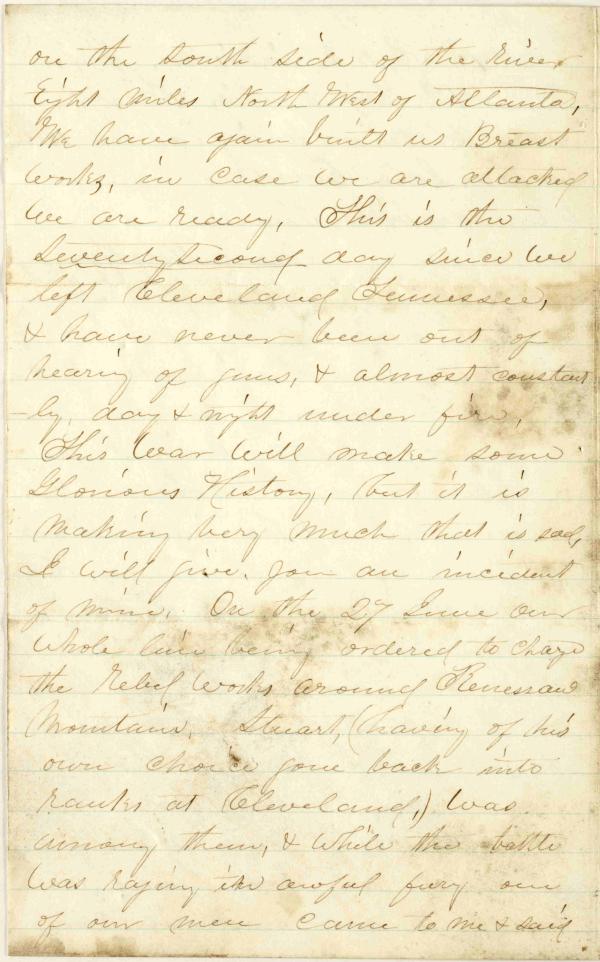 on the south side of the river
Eight miles North West of Atlanta,
We have again built us Breast
works, in case we are attacked
we are ready, This is the
seventy second day since we
left Cleveland Tennessee,
& have never been out of
hearing of guns, & almost constant
-ly, day & night under fire,
This War will make some
Glorious History, but it is
making very much that is sad,
I will give you an incident
of mine. On the 27 June our
whole line being ordered to charge
the rebel works around Kenesaw
Mountain, Stuart, (having of his
own choice gone back into
ranks at Cleveland,) was
among them, & while the battle
was raging in awful fury one
of our men came to me & said